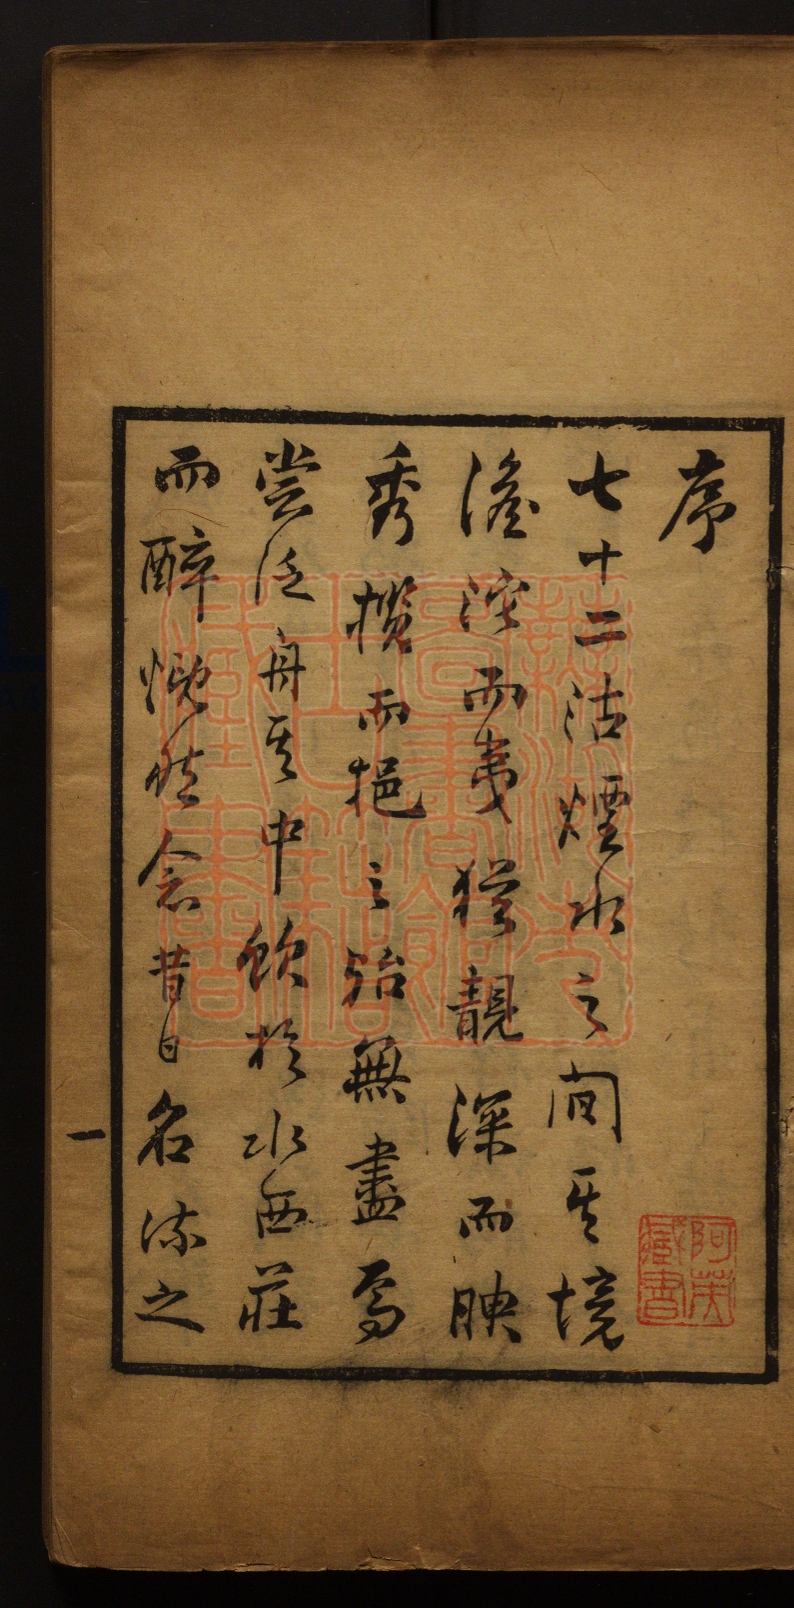 序
七十二沽煙水之間其境
澹而夷猶靚深而腴
秀攬而挹之殆無盡焉
嘗泛舟其中飲於水西莊
而醉慨然念昔日名流之
一
阿英
藏書